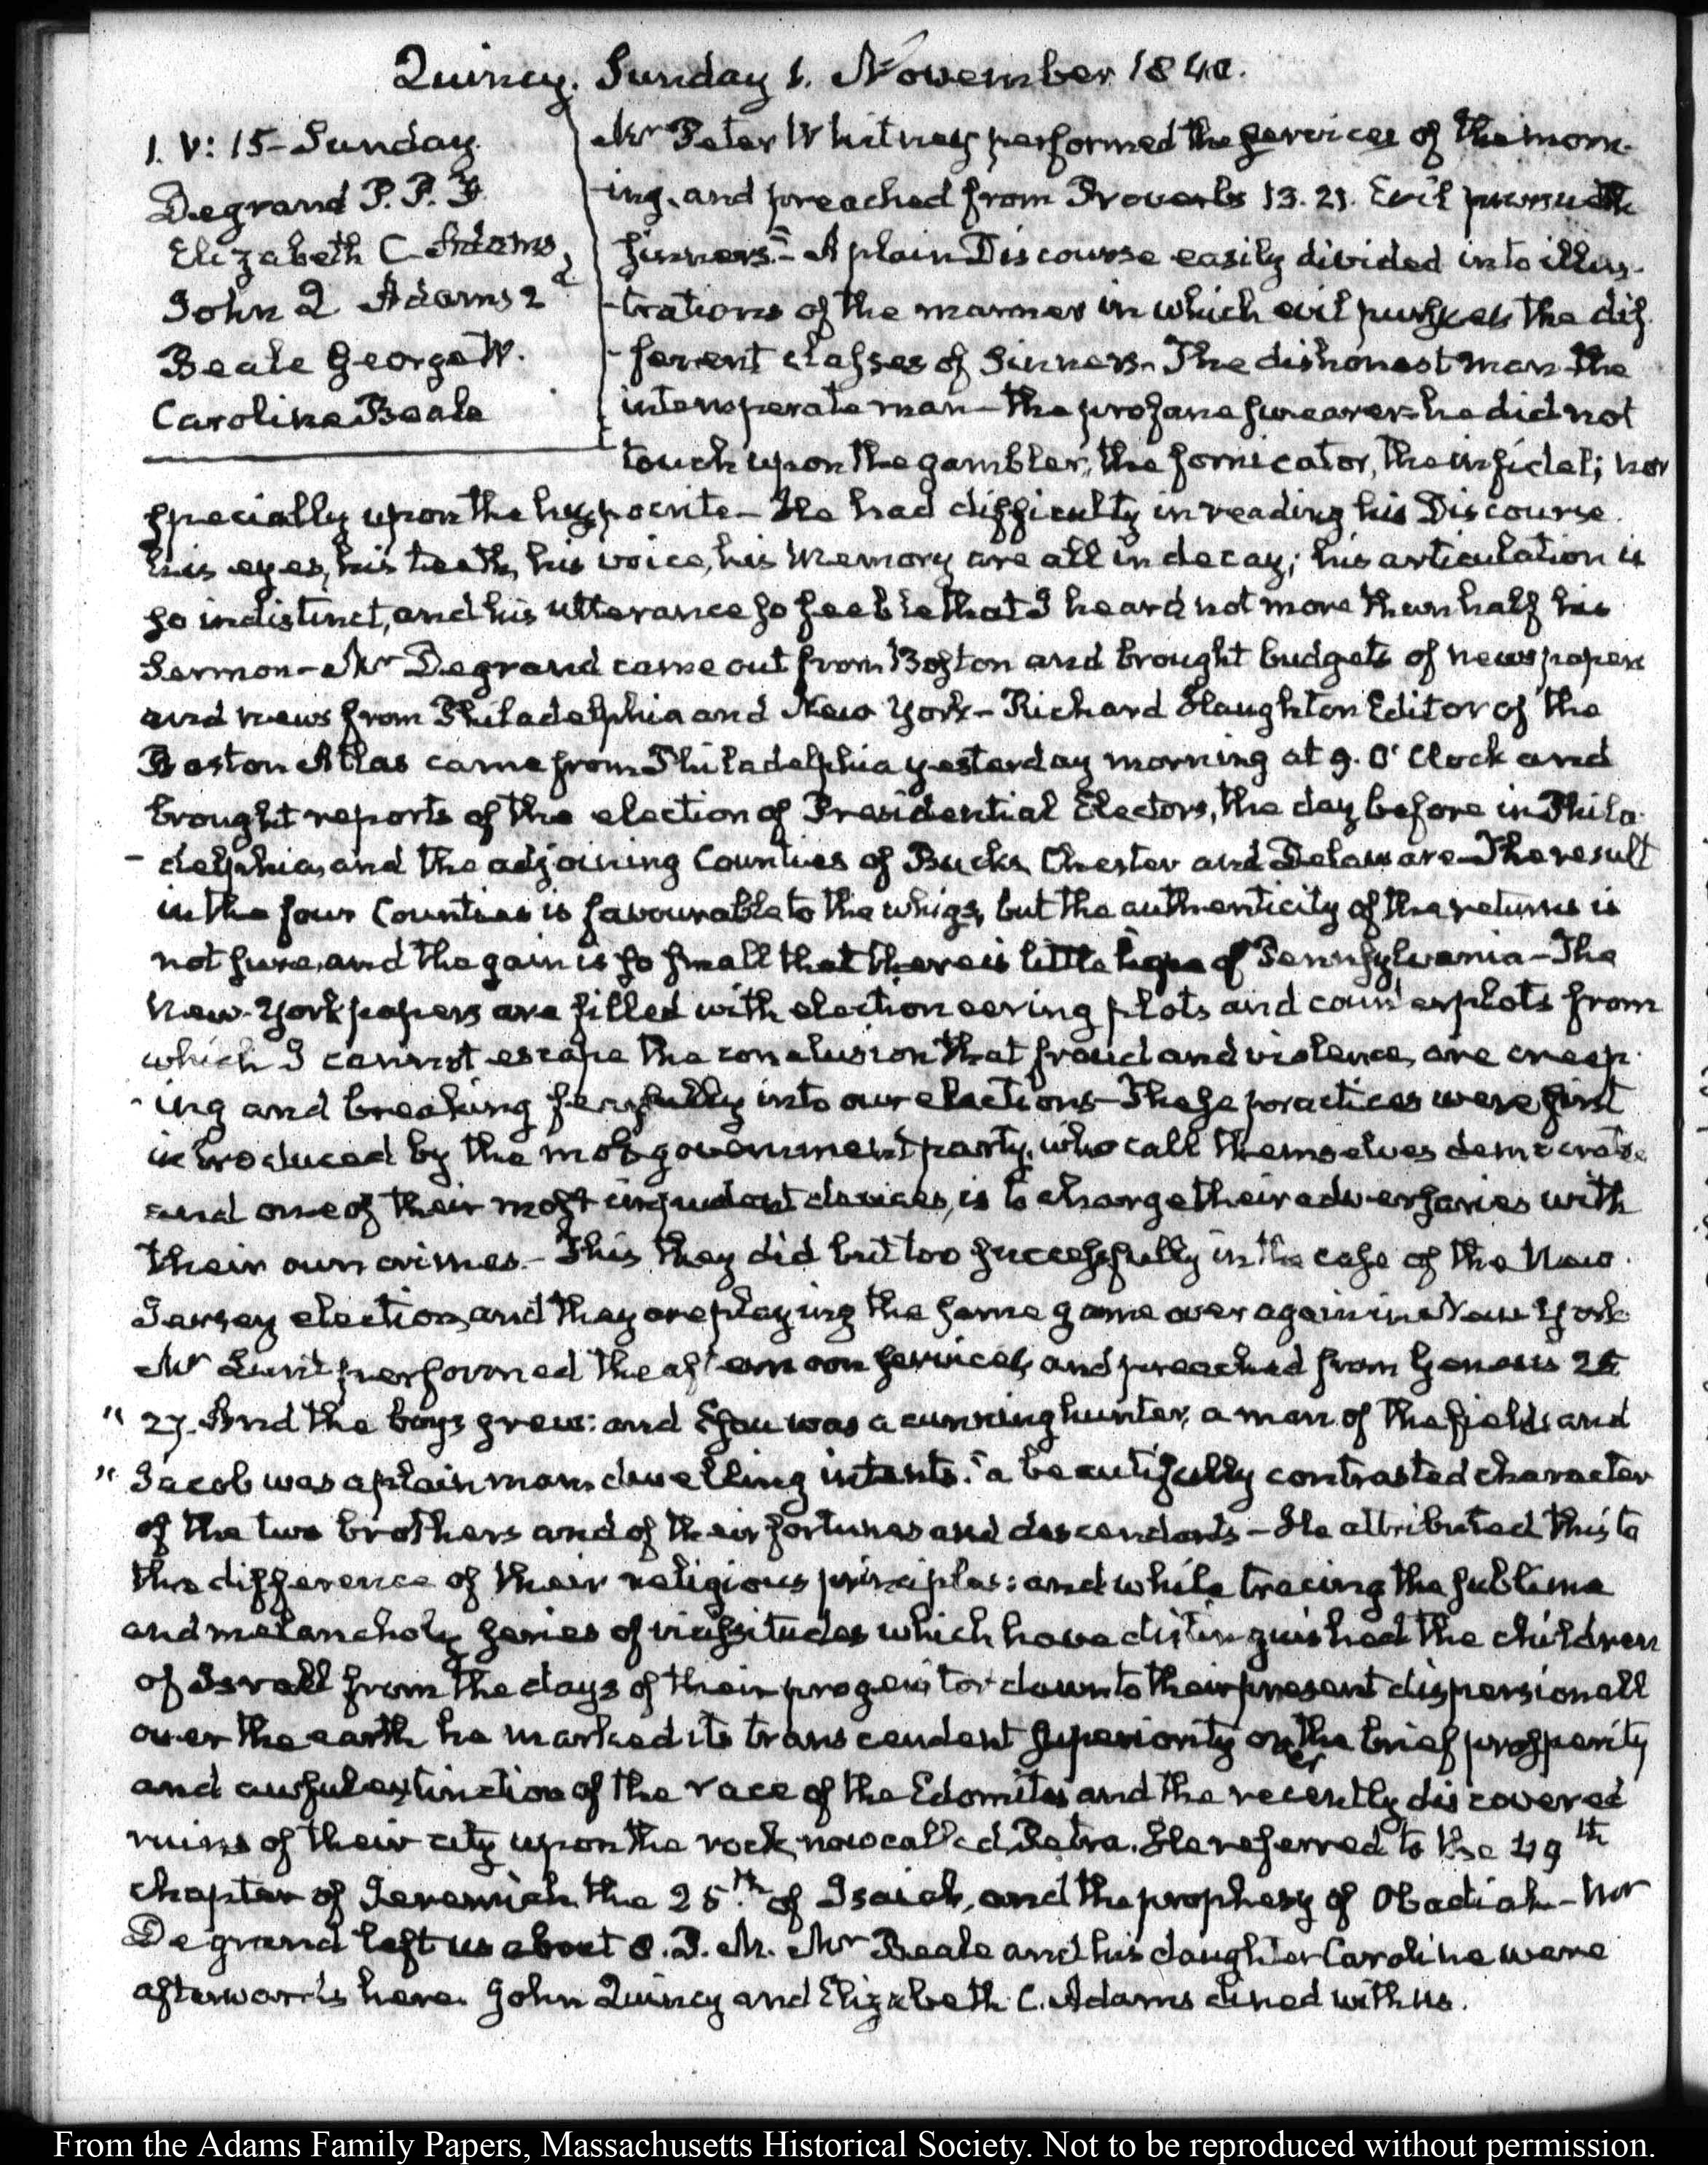 Quincy. Sunday 1. November 1840.
1. V: 15 - Sunday.
Degrand P. P. F.
Elizabeth C. Adams
John Q Adams 2d
Beale George W.
Caroline Beale
Mr Peter Whitney performed the services of the morn-
ing, and preached from Proverbs 13. 21. Evil pursueth
sinners." - A plain Discourse easily divided into illus-
trations of the manner in which evil pursues the dif-
-ferent classes of Sinners - The dishonest man - the
intemperate man - the profane swearer - he did not
touch upon the gambler, the fornicator, the infidel; nor
specially upon the hypocrite - He had difficulty in reading his Discourse.
his eyes, his teeth, his voice, his memory are all in decay; his articulation is
so indistinct, and his utterance so feeble that I heard not more than half his
Sermon - Mr Degrand came out from Boston and brought budgets of newspapers
and news from Philadelphia and New York - Richard Haughton Editor of the
Boston Atlas came from Philadelphia yesterday morning at 9. O'Clock and
brought reports of the election of Presidential Electors, the day before in Phila-
-delphia, and the adjoining Counties of Bucks, Chester and Delaware - The result
in the four Counties is favourable to the whigs, but the authenticity of the returns is
not sure, and the gain is so small that there is little hope of Pennsylvania - The
New-York papers are filled with electioneering plots and counterplots from
which I cannot escape the conclusion that fraud and violence, are creep-
-ing and breaking fearfully into our elections - These practices were first
introduced by the mob government party, who call themselves democrats
and one of their most impudent devices, is to charge their adversaries with
their own crimes. - This they did but too successfully in the case of the New-
Jersey election, and they are playing the same game over again in New York
Mr Lunt performed the afternoon services, and preached from Genesis 25
" 27. And the boys grew: and Esau was a cunning hunter, a man of the field; and
" Jacob was a plain man, dwelling in tents." a beautifully contrasted character
of the two brothers and of their fortunes and descendants - He attributed this to
the difference of their religious principles: and while tracing the sublime
and melancholy series of vicissitudes which have distinguished the children
of Israel from the days of their progenitor down to their present dispersion all
over the earth he marked its transcendent superiority over the brief prosperity
and awful extinction of the race of the Edomites and the recently discovered
ruins of their city upon the rock, now called Petra. He referred to the 49th
chapter of Jeremiah the 25.th of Isaiah, and the prophesy of Obadiah - Mr
Degrand left us about 8. P. M. Mr Beale and his daughter Caroline were
afterwards here. John Quincy and Elizabeth C. Adams dined with us.
From the Adams Family Papers, Massachusetts Historical Society. Not to be reproduced without permission.